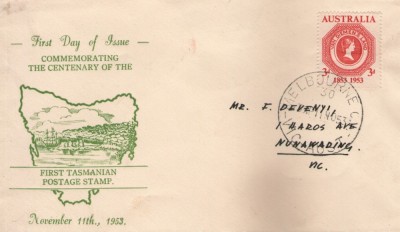 First Day of Issue
COMMEMORATING
THE CENTENARY OF THE
FIRST TASMANIAN
POSTAGE STAMP.
November 11th., 1953.
AUSTRALIA
3d 1853-1953 3d
MELBOURNE
VIC. AUST
MR. F. DEVENYI,
1 HAROS AVE
NUNAWADING
VIC.